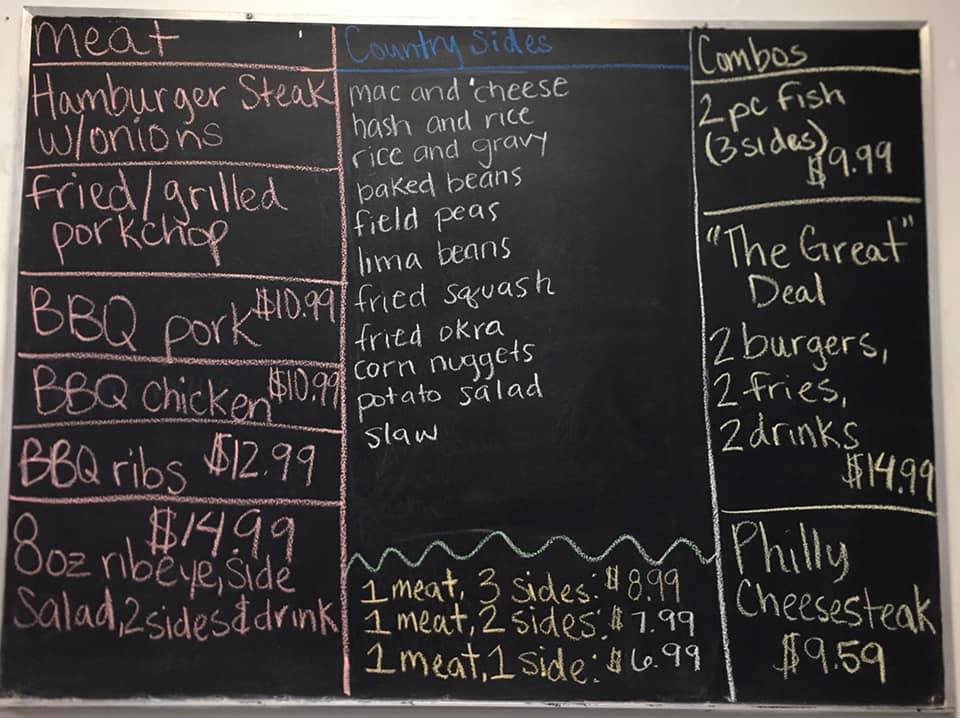 meat
Hamburger Steak
w/onions
fried/grilled
porkchop
BBQ pork $10.99
BBQ chicken $10.99
BBQ ribs $12.99
$14.99
8oz ribeye, side
Salad, 2 sides & drink
Country Sides
mac and cheese
hash and rice
rice and gravy
baked beans
field peas
lima beans
fried squash
fried okra
corn nuggets
potato salad
slaw
1 meat, 3 sides: $8.99
1 meat, 2 sides: $7.99
1 meat, 1 side: $6.99
Combos
2 pc fish
(3 sides)
$9.99
"The Great"
Deal
2 burgers,
2 fries,
2 drinks
$14.99
Philly
Cheesesteak
$9.59